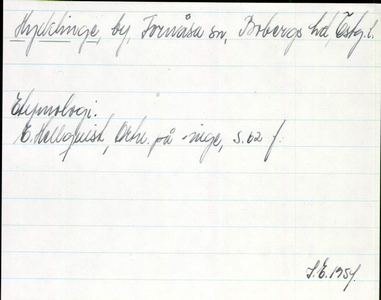 Hycklinge, by, Fornåsa sn, Bobergs hd, Östg.l.
Etymologi.
E. Hellquist, Ortn. på -inge, s. 62 f.
J.E. 1954.